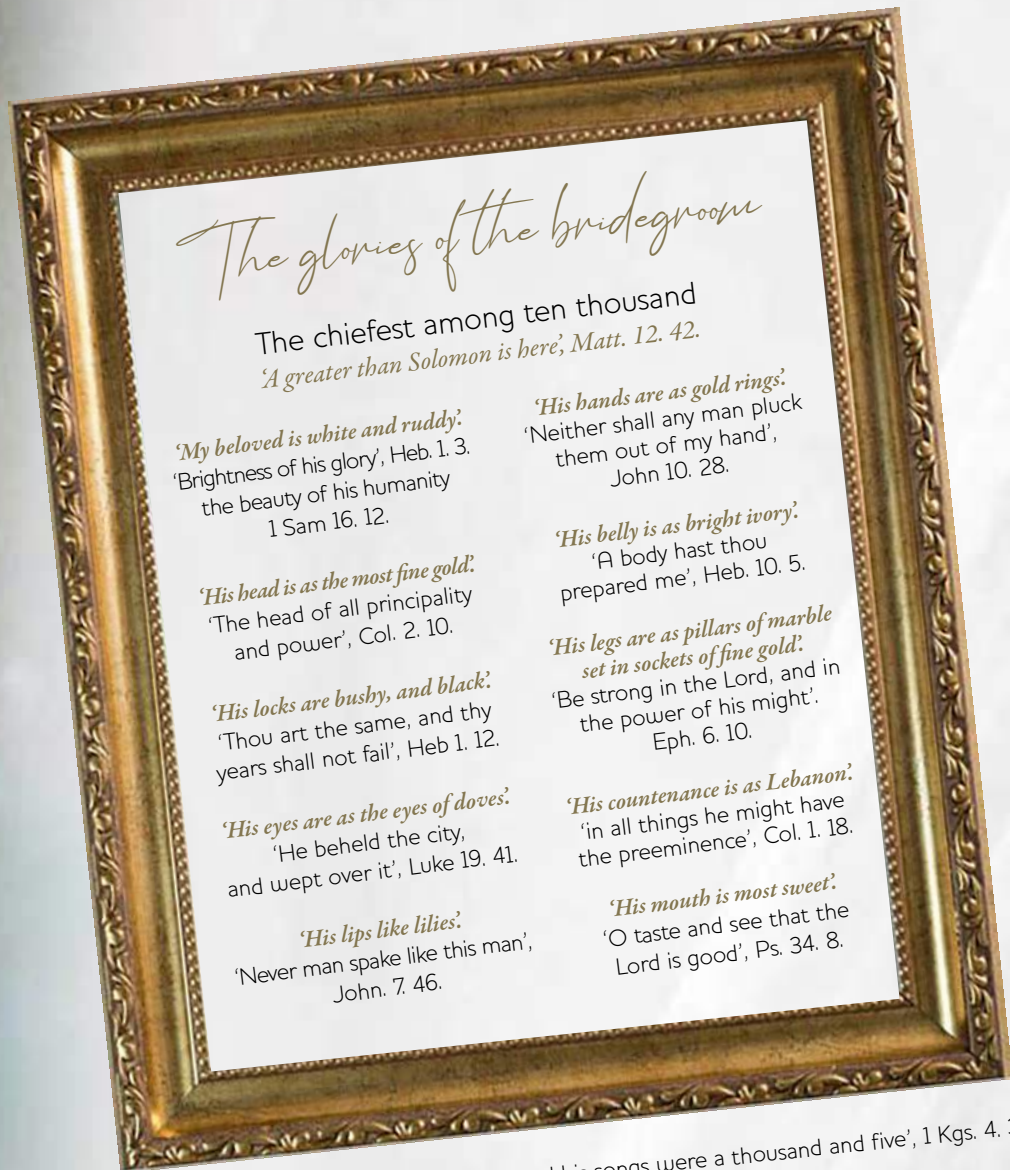 The glories of the bridegroom
The chiefest among ten thousand
‘A greater than Solomon is here’, Matt. 12. 42.
‘My beloved is white and ruddy’.
‘Brightness of his glory’, Heb. 1. 3.
the beauty of his humanity
1 Sam 16. 12.
‘His head is as the most fine gold’.
‘The head of all principality
and power’, Col. 2. 10.
‘His locks are bushy, and black’.
‘Thou art the same, and thy
years shall not fail’, Heb 1. 12.
‘His eyes are as the eyes of doves’.
‘He beheld the city,
and wept over it’, Luke 19. 41.
‘His lips like lilies’.
‘Never man spake like this man’,
John. 7. 46.
‘His hands are as gold rings’.
‘Neither shall any man pluck
them out of my hand’,
John 10. 28.
‘His belly is as bright ivory’.
‘A body hast thou
prepared me’, Heb. 10. 5.
‘His legs are as pillars of marble
set in sockets of fine gold’.
‘Be strong in the Lord, and in
the power of his might’.
Eph. 6. 10.
‘His countenance is as Lebanon’.
‘in all things he might have
the preeminence’, Col. 1. 18.
‘His mouth is most sweet’.
‘O taste and see that the
Lord is good’, Ps. 34. 8.
songs were a thousand and five’, 1 Kgs. 4.